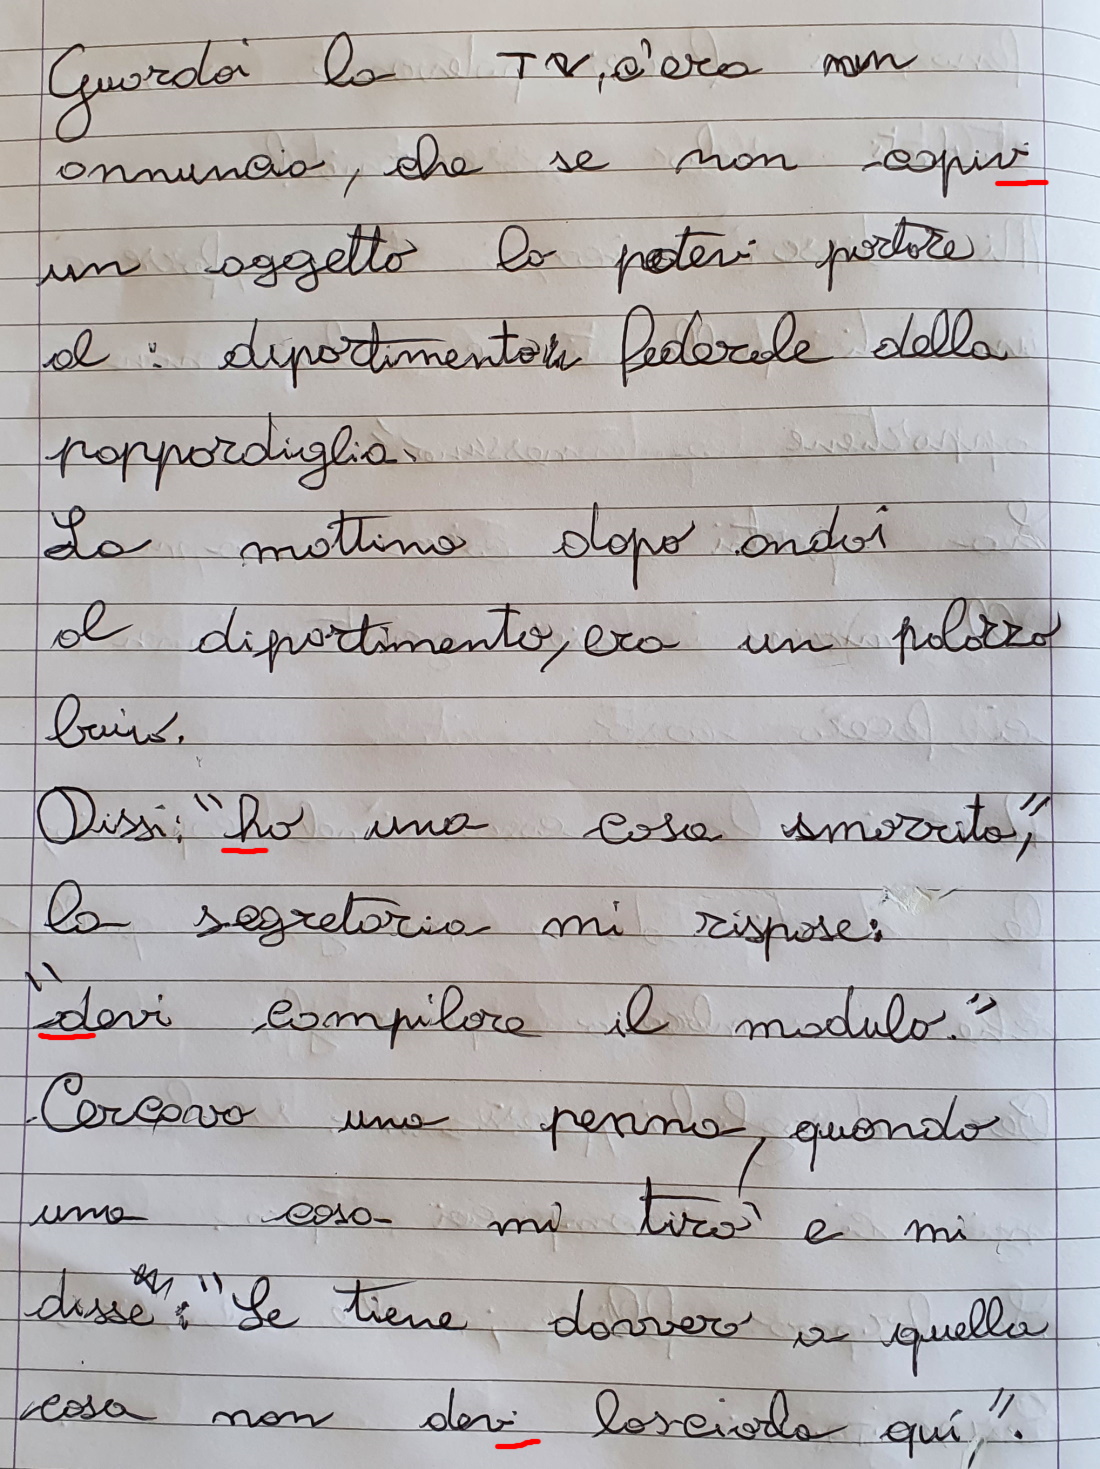 Guardai la TV, c'era un
annuncio, che se non capivi
un oggetto lo potevi portare
al : dipartimento federale della
pappardiglia.
La mattina dopo andai
al dipartimento, era un palazzo
buio.
Dissi: "ho una cosa smarrita",
la segretaria mi rispose:
"devi compilare il modulo."
Cercavo una penna, quando
una cosa mi tirò e mi
disse: "Se tiene davvero a quella
cosa non devi lasciarla qui,".